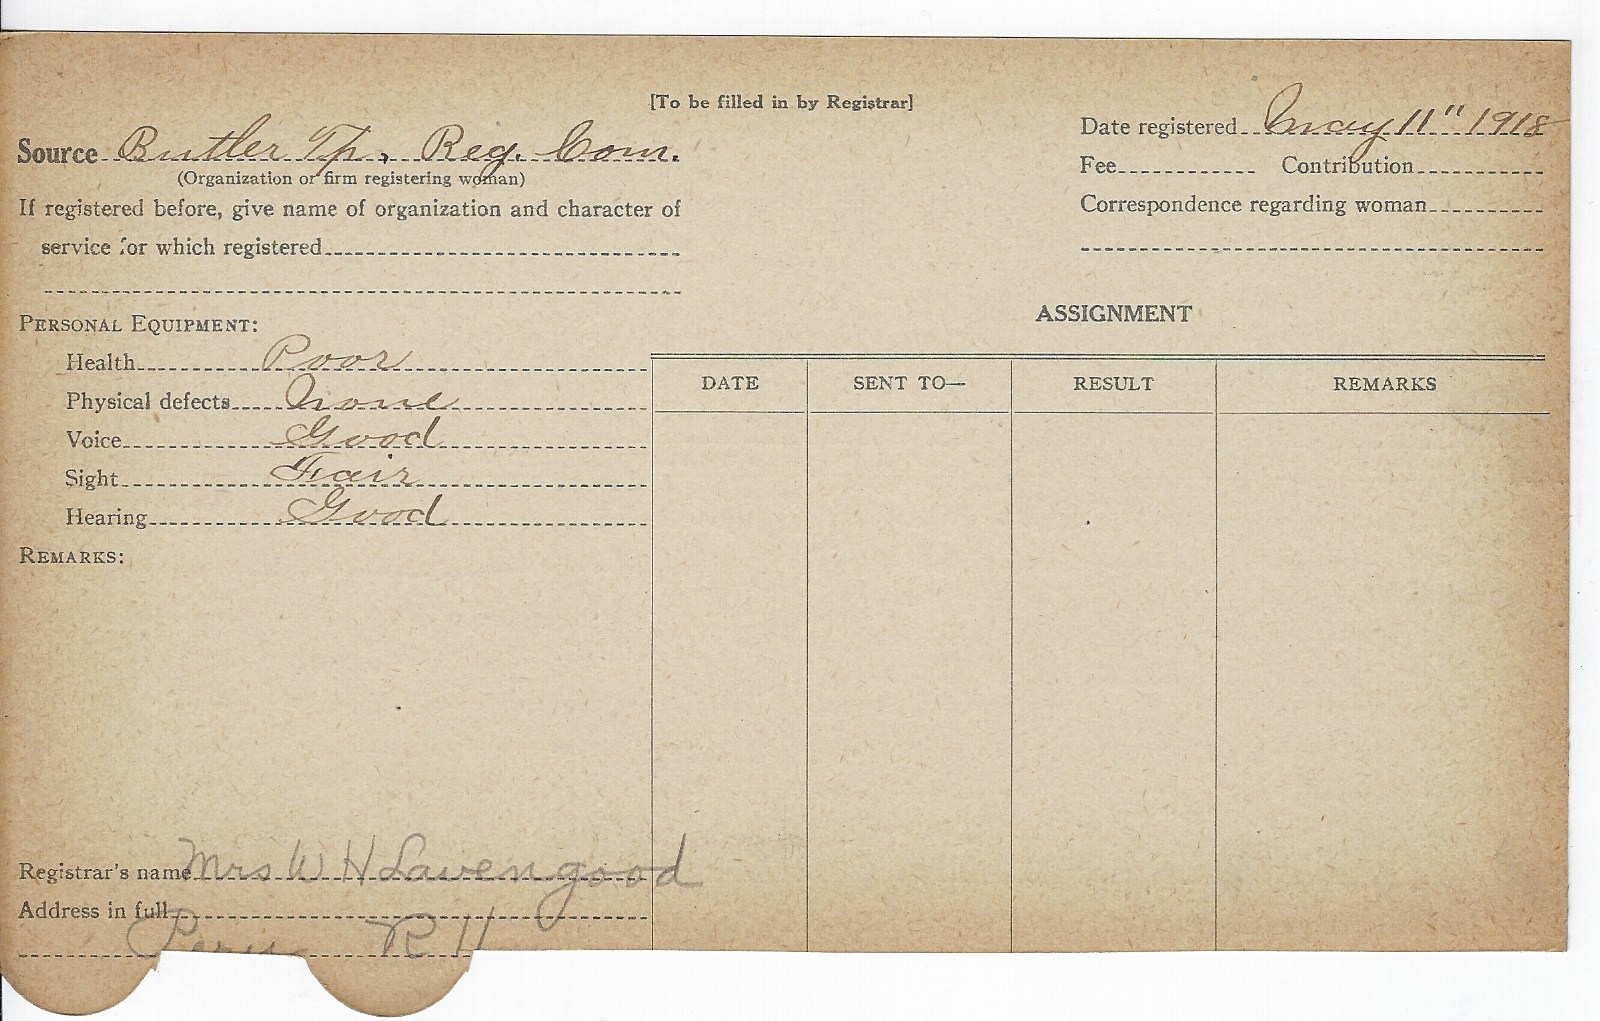 [To be filled in by Registrar]
Source Butler Tp. Reg. Com.
(Organization or firm registering woman)
If registered before, give name of organization and character of
service for which registered
Date registered May 11" 1918
Fee Contribution
Correspondence regarding woman
PERSONAL EQUIPMENT:
Health Poor
Physical defects None
Voice Good
Sight Fair
Hearing Good
REMARKS:
ASSIGNMENT
DATE SENT TO— RESULT REMARKS
Registrar's name Mrs W H Lavengood
Address in full
Peru R 11